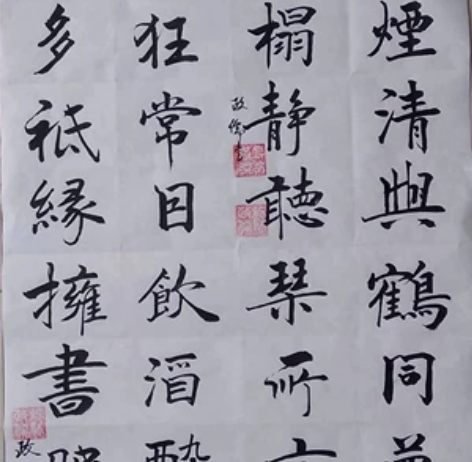 煙清與鶴同
榻静聽琴所
狂常日飲酒醉
多祗緣擁書
政
政